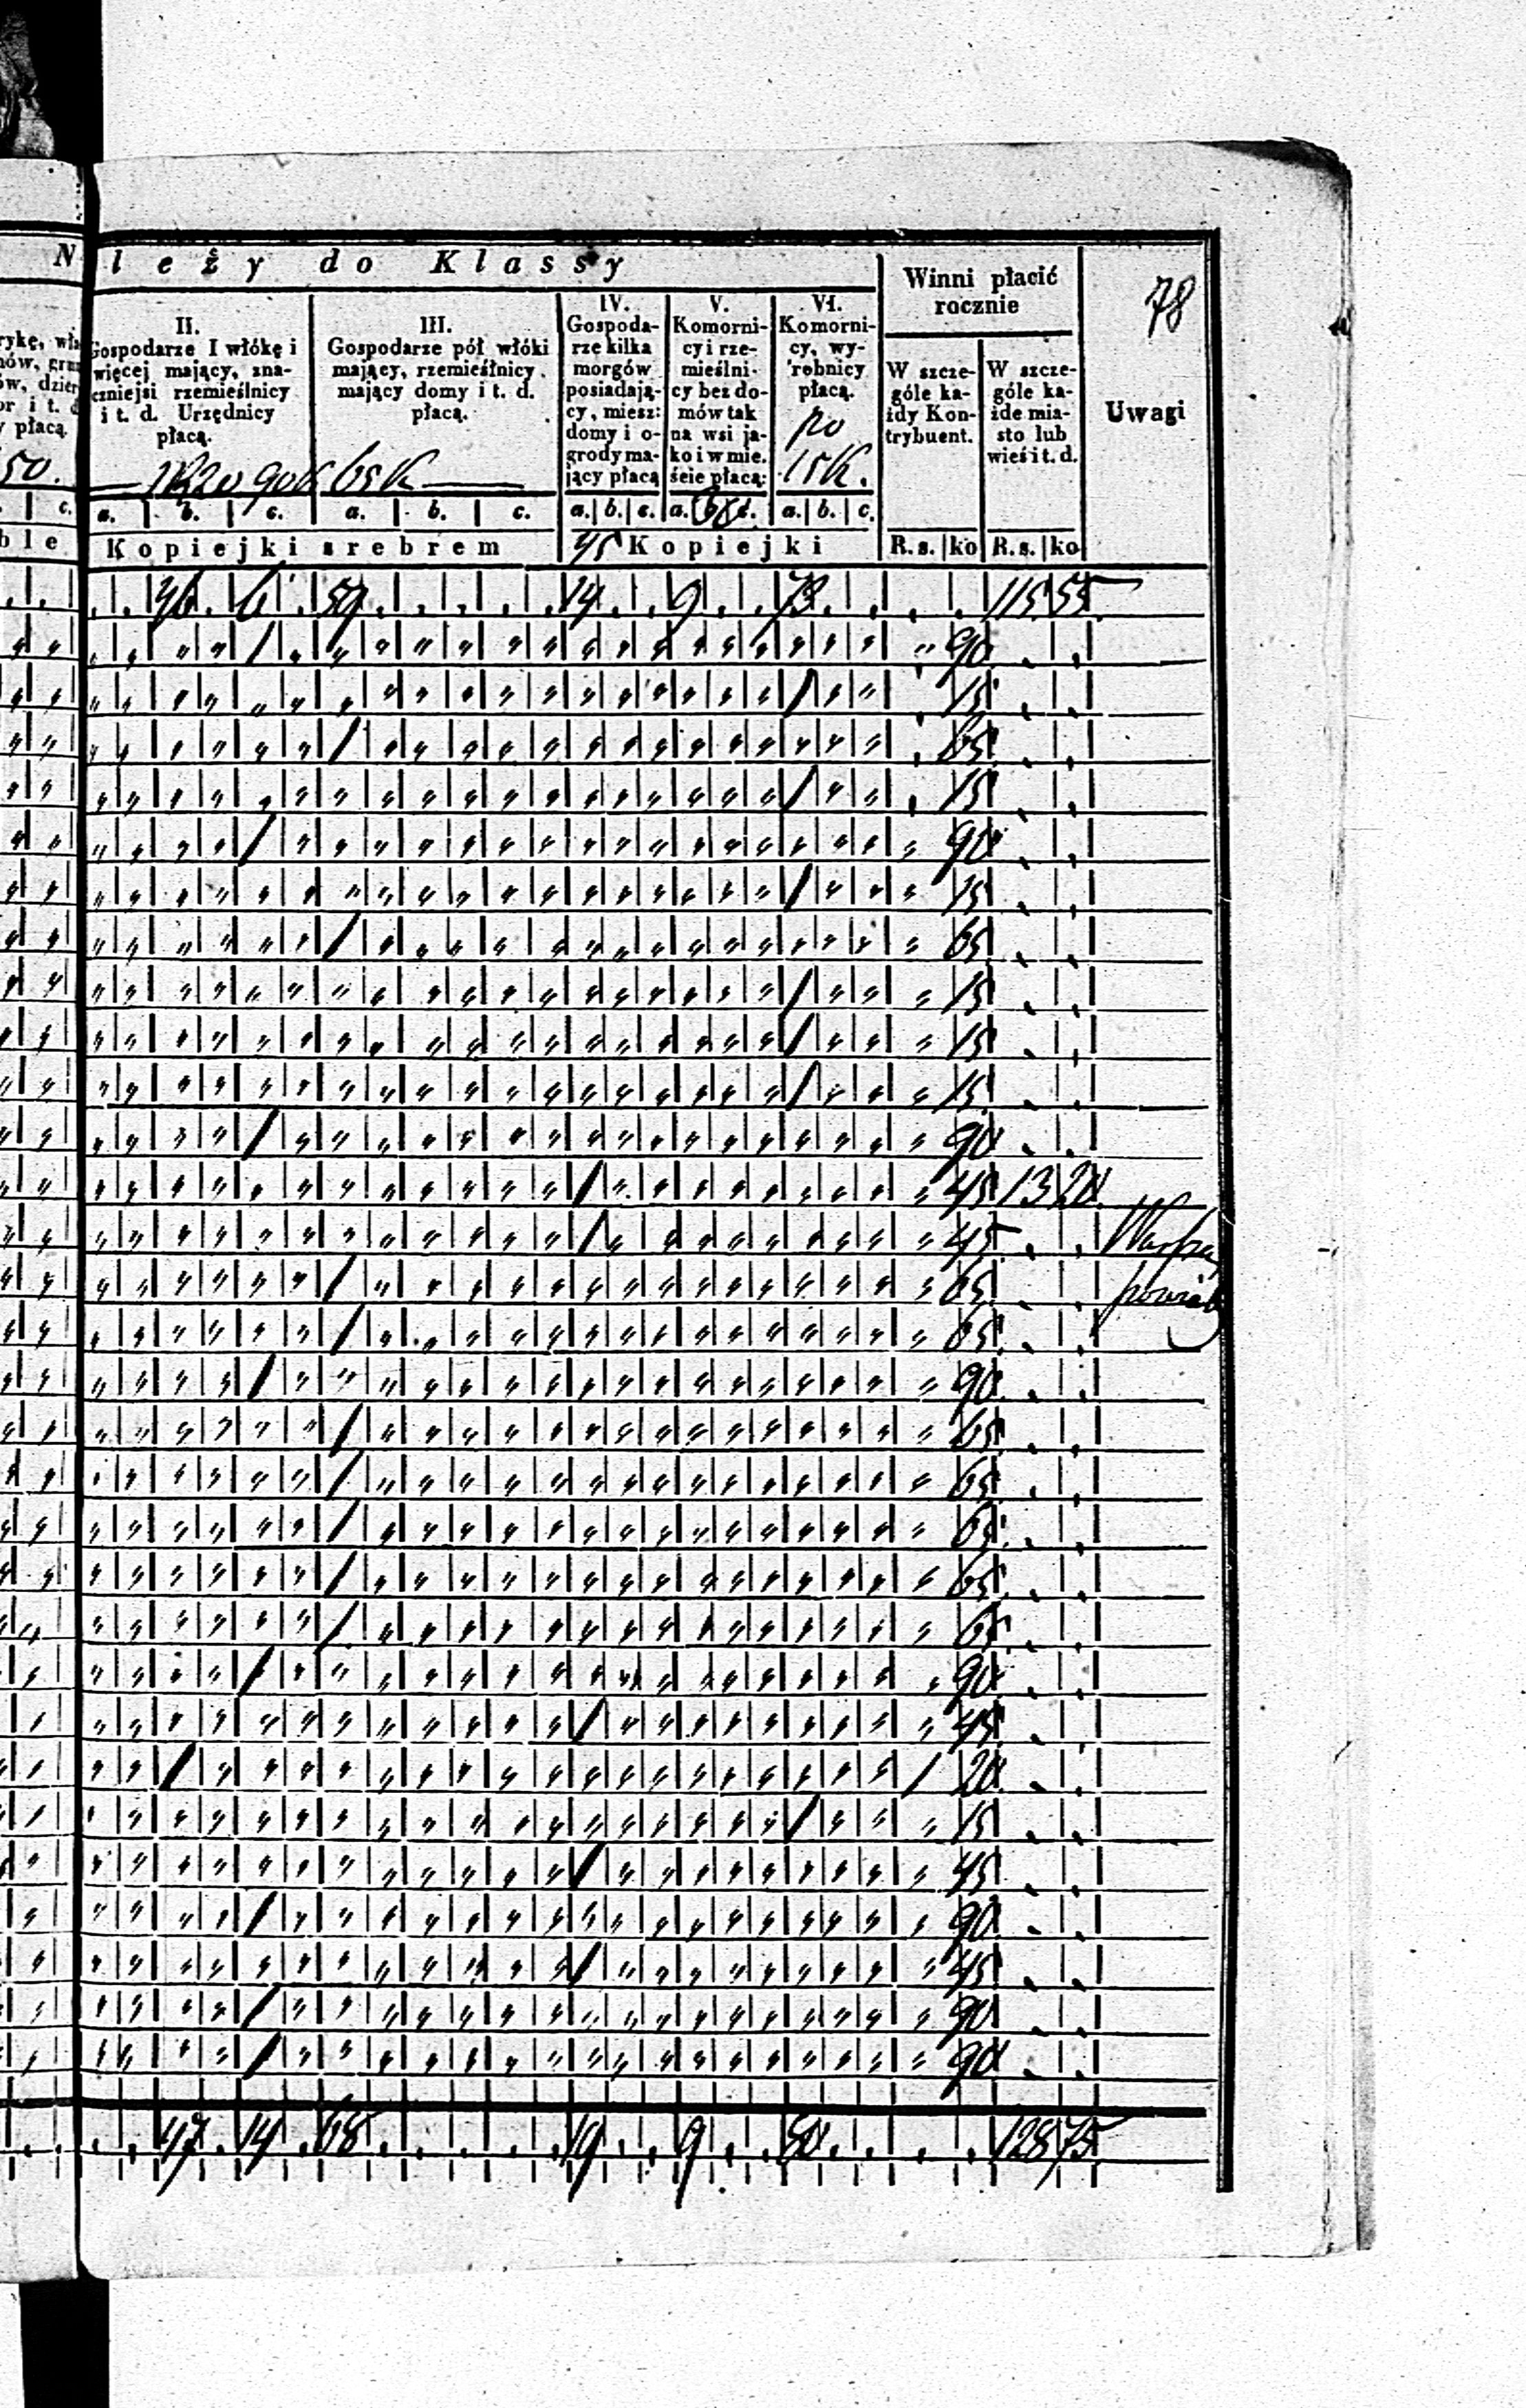 N leży do Klassy
Winni płacić
rocznie
78
II.
Gospodarze I włókę i
więcej mający, zna-
czniejsi rzemieślnicy
i t. d. Urzędnicy
płacą.
III.
Gospodarze pół włóki
mający, rzemieślnicy
mający domy i t. d.
płacą.
IV.
Gospoda-
rze kilka
morgów
posiadają-
cy, miesz:
domy i o-
grody ma-
jący płacą
V.
Komorni-
cy i rze-
mieślni-
cy bez do-
mów tak
na wsi ja-
ko i w mie.
ście płacą:
VI.
Komorni-
cy, wy-
robnicy
płacą.
po
15 K.
W szcze-
góle ka-
żdy Kon-
trybuent.
W szcze-
góle ka-
żde mia-
sto lub
wieś i t. d.
Uwagi
50.
65 K
c. a. b. c. a. b. c. a. b. c. a. c. a. b. c.
ble Kopiejki srebrem 45 Kopiejki R.s. ko R.s. ko
46 6 59 14 9 73 115 55
90
15
65
15
90
15
65
15
15
15
90
45 13 20
45
65
65
90
65
65
65
65
65
90
45
1 20
15
45
90
45
90
90
47 14 68 19 9 80 128 75